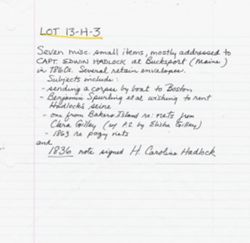 LOT 13-H-3
Seven misc. small items, mostly addressed to
CAPT. EDWIN HADLOCK at Bucksport (Maine)
in 1860s. Several retain envelopes.
Subjects include:
- sending a corpse by boat to Boston
- Benjamin Spurling et al wishing to rent
Hadlock's seine
- one from Bakers Island re: nets from
Clara Gilley (w/ AS by Elisha Gilley)
- 1863 re pogy nets
and
1836 note signed H. Caroline Hadlock